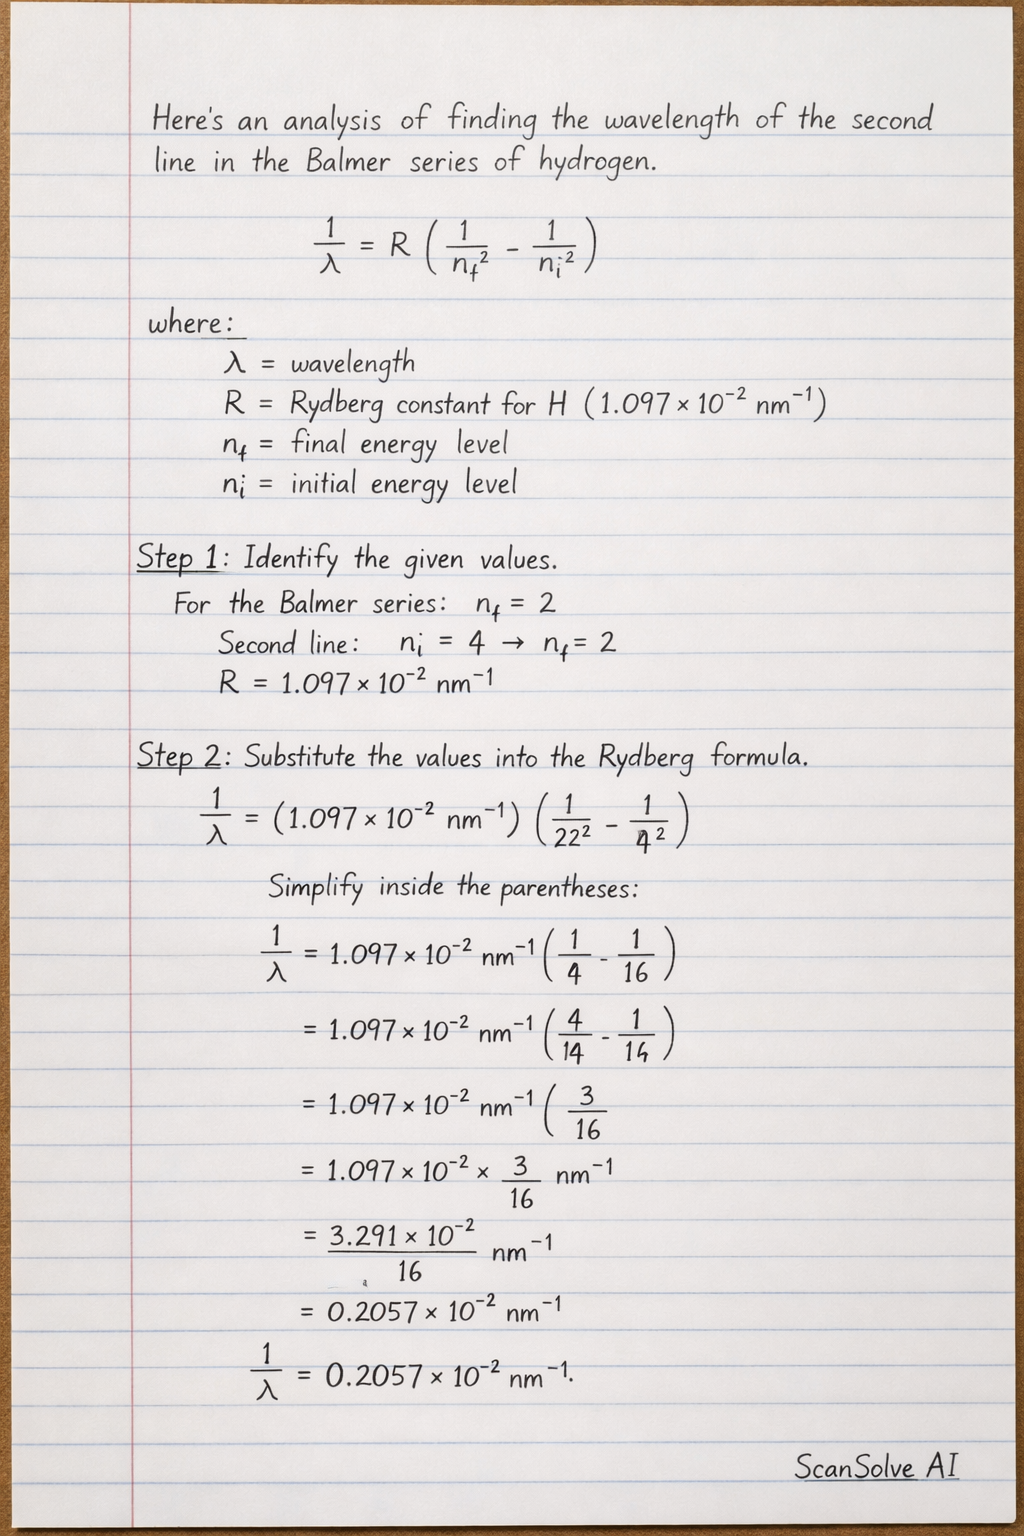 Here's an analysis of finding the wavelength of the second
line in the Balmer series of hydrogen.
1/λ = R (1/n_f² - 1/n_i²)
where:
λ = wavelength
R = Rydberg constant for H (1.097 × 10⁻² nm⁻¹)
n_f = final energy level
n_i = initial energy level
Step 1: Identify the given values.
For the Balmer series: n_f = 2
Second line: n_i = 4 → n_f = 2
R = 1.097 × 10⁻² nm⁻¹
Step 2: Substitute the values into the Rydberg formula.
1/λ = (1.097 × 10⁻² nm⁻¹) (1/22² - 1/4²)
Simplify inside the parentheses:
1/λ = 1.097 × 10⁻² nm⁻¹ (1/4 - 1/16)
= 1.097 × 10⁻² nm⁻¹ (4/14 - 1/14)
= 1.097 × 10⁻² nm⁻¹ ( 3/16
= 1.097 × 10⁻² × 3/16 nm⁻¹
= 3.291 × 10⁻²/16 nm⁻¹
= 0.2057 × 10⁻² nm⁻¹
1/λ = 0.2057 × 10⁻² nm⁻¹.
ScanSolve AI